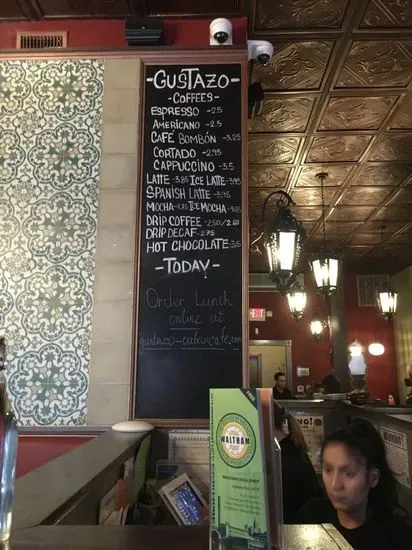 -GUSTAZO-
-COFFEES-
ESPRESSO -2.5
AMERICANO -2.5
CAFÉ BOMBÓN -3.25
CORTADO -2.95
CAPPUCCINO -3.5
LATTE -3.85 ICE LATTE -3.95
SPANISH LATTE -3.95
MOCHA -4.75 ICE MOCHA -4.85
DRIP COFFEE -2.50/2.60
DRIP DECAF -2.75
HOT CHOCOLATE -3.5
-TODAY-
Order Lunch
online at
gustazo-cubancafe.com
EXIT
WALTHAM
WALTHAM LOCAL FIRST